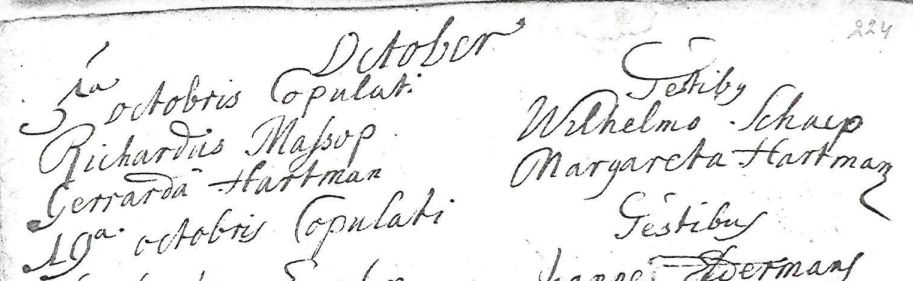 224
October
5ta octobris Copulati
Richardus Massop
Gerrarda Hartman
Testibus
Wilhelmo Schaep
Margareta Hartman
19a. octobris Copulati
Testibus